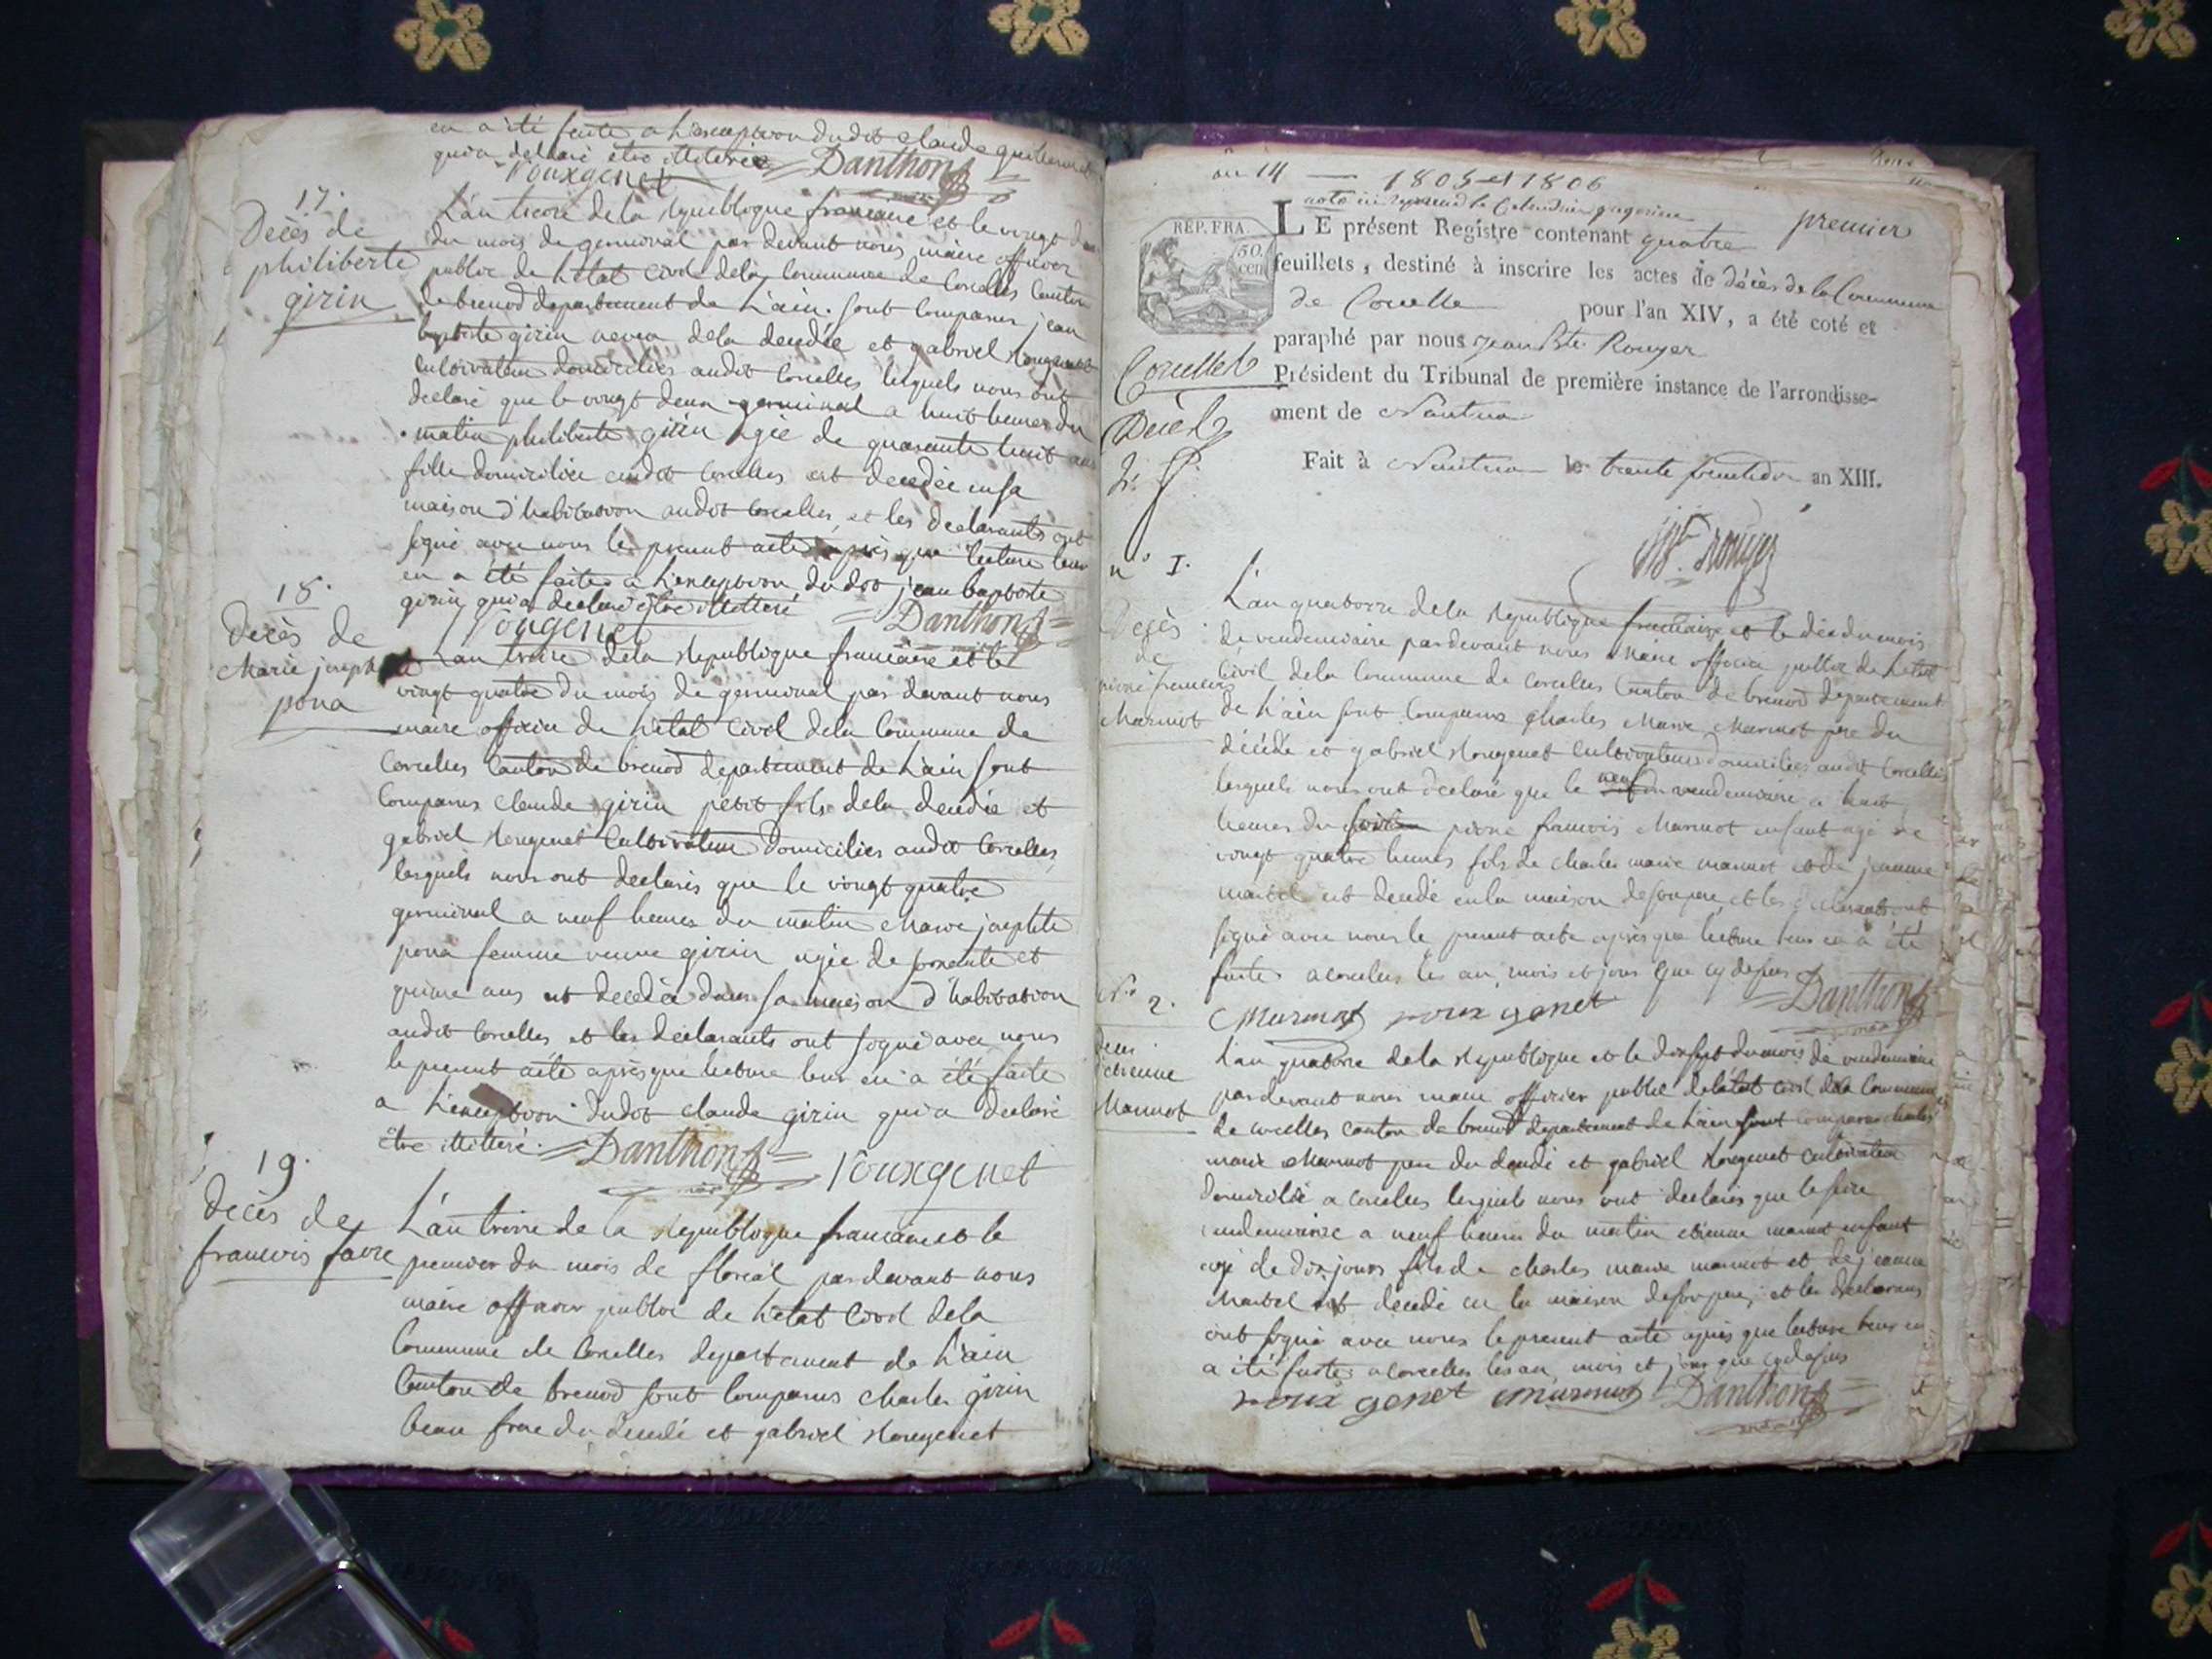 en a été faite a l'exception dudit claude guillermet
qui a declaré etre illiteré Danthon
Rouxgenet
17.
Décès de
philiberte
girin
L'an treize de la republique francaise et le vingt deux
du mois de germinal par devant nous maire officier
public de l'état civil dela Commune de Corcelles Canton
de brenod departement de L'ain. sont comparus jean
baptiste girin neveu dela decedée et gabriel Rougenet
Cultivateurs domiciliés audit Corcelles lesquels nous ont
declaré que le vingt deux germinal a huit heures du
matin philiberte girin agée de quarante huit ans
fille domiciliée audit Corcelles est decedée en sa
maison d'habitation audit Corcelles, et les declarants ont
signé avec nous le present acte après que lecture leur
en a été faite a l'exception dudit jean baptiste
girin qui a declaré estre illitteré Danthon
Rougenet
18.
Decès de
Marie josephte
pona
L'an treize dela Republique francaise et le
vingt quatre du mois de germinal par devant nous
maire officier de l'état Civil dela Commune de
Corcelles Canton de brenod departement de L'ain sont
Comparus Claude girin petit fils dela decedée et
gabriel Rougenet Cultivateurs domiciliés audit Corcelles
lesquels nous ont declarés que le vingt quatre
germinal a neuf heures du matin Marie josephte
pona femme veuve girin agée de soixante et
quinze ans est decedée dans sa maison d'habitation
audit Corcelles et les declarants ont signé avec nous
le present acte après que lecture leur en a été faite
a l'exception dudit claude girin qui a declaré
être illitteré. Danthon Rouxgenet
19.
Decès de
francois favre
L'an treize de la republique francaise et le
premier du mois de floréal par devant nous
maire officier public de l'état Civil dela
Commune de Corcelles departement de L'ain
Canton de brenod sont Comparus charles girin
beau frere du decedé et gabriel Rougenet
an 14 — 1805 et 1806
nota ici reprend le Calendrier gregorien
premier
RÉP. FRA.
50.
cen
LE présent Registre contenant quatre
feuillets, destiné à inscrire les actes de décès de la Commune
de Corcelle pour l'an XIV, a été coté et
paraphé par nous jean Bte Rouyer
Président du Tribunal de première instance de l'arrondisse-
ment de Nantua
Corcelles
Décès
Fait à Nantua le trente fructidor an XIII.
JB. Rouyer
n° 1.
Décès
de
pierre francois
Marmot
L'an quatorze dela Republique francaise et le dix du mois
de vendemiaire pardevant nous Maire officier public de l'état
Civil dela Commune de Corcelles Canton de brenod departement
de L'ain sont Comparus Charles Marie Marmot pere du
décédé et gabriel Rougenet Cultivateurs domiciliés audit Corcelles
lesquels nous ont declaré que le neuf vendemiaire a huit
heures du soir pierre francois Marmot enfant agé de
vingt quatre heures fils de Charles marie marmot et de jeanne
martel est decedé en la maison de son pere, et les declarants ont
signé avec nous le present acte après que lecture leur en a été
faite a corcelles les an, mois et jour que cy dessus Danthon
Cmarmot rouxgenet
N.° 2.
deces
detienne
Marmot
L'an quatorze dela Republique et le dix sept du mois de vendémiaire
pardevant nous maire officier public de létat civil dela Commune
de corcelles canton de brenod departement de L'ain sont comparus charles
marie Marmot pere du decedé et gabriel Rougenet cultivateur
domicilié a corcelles lesquels nous ont declarés que le seize
vendemiaire a neuf heures du matin etienne marmot enfant
agé de dix jours fils de charles marie marmot et de jeanne
Martel est decedé en la maison de son pere, et les declarans
ont signé avec nous le present acte après que lecture leur en
a été faite a Corcelles les an, mois et jour que cy dessus
rouxgenet Cmarmot Danthon